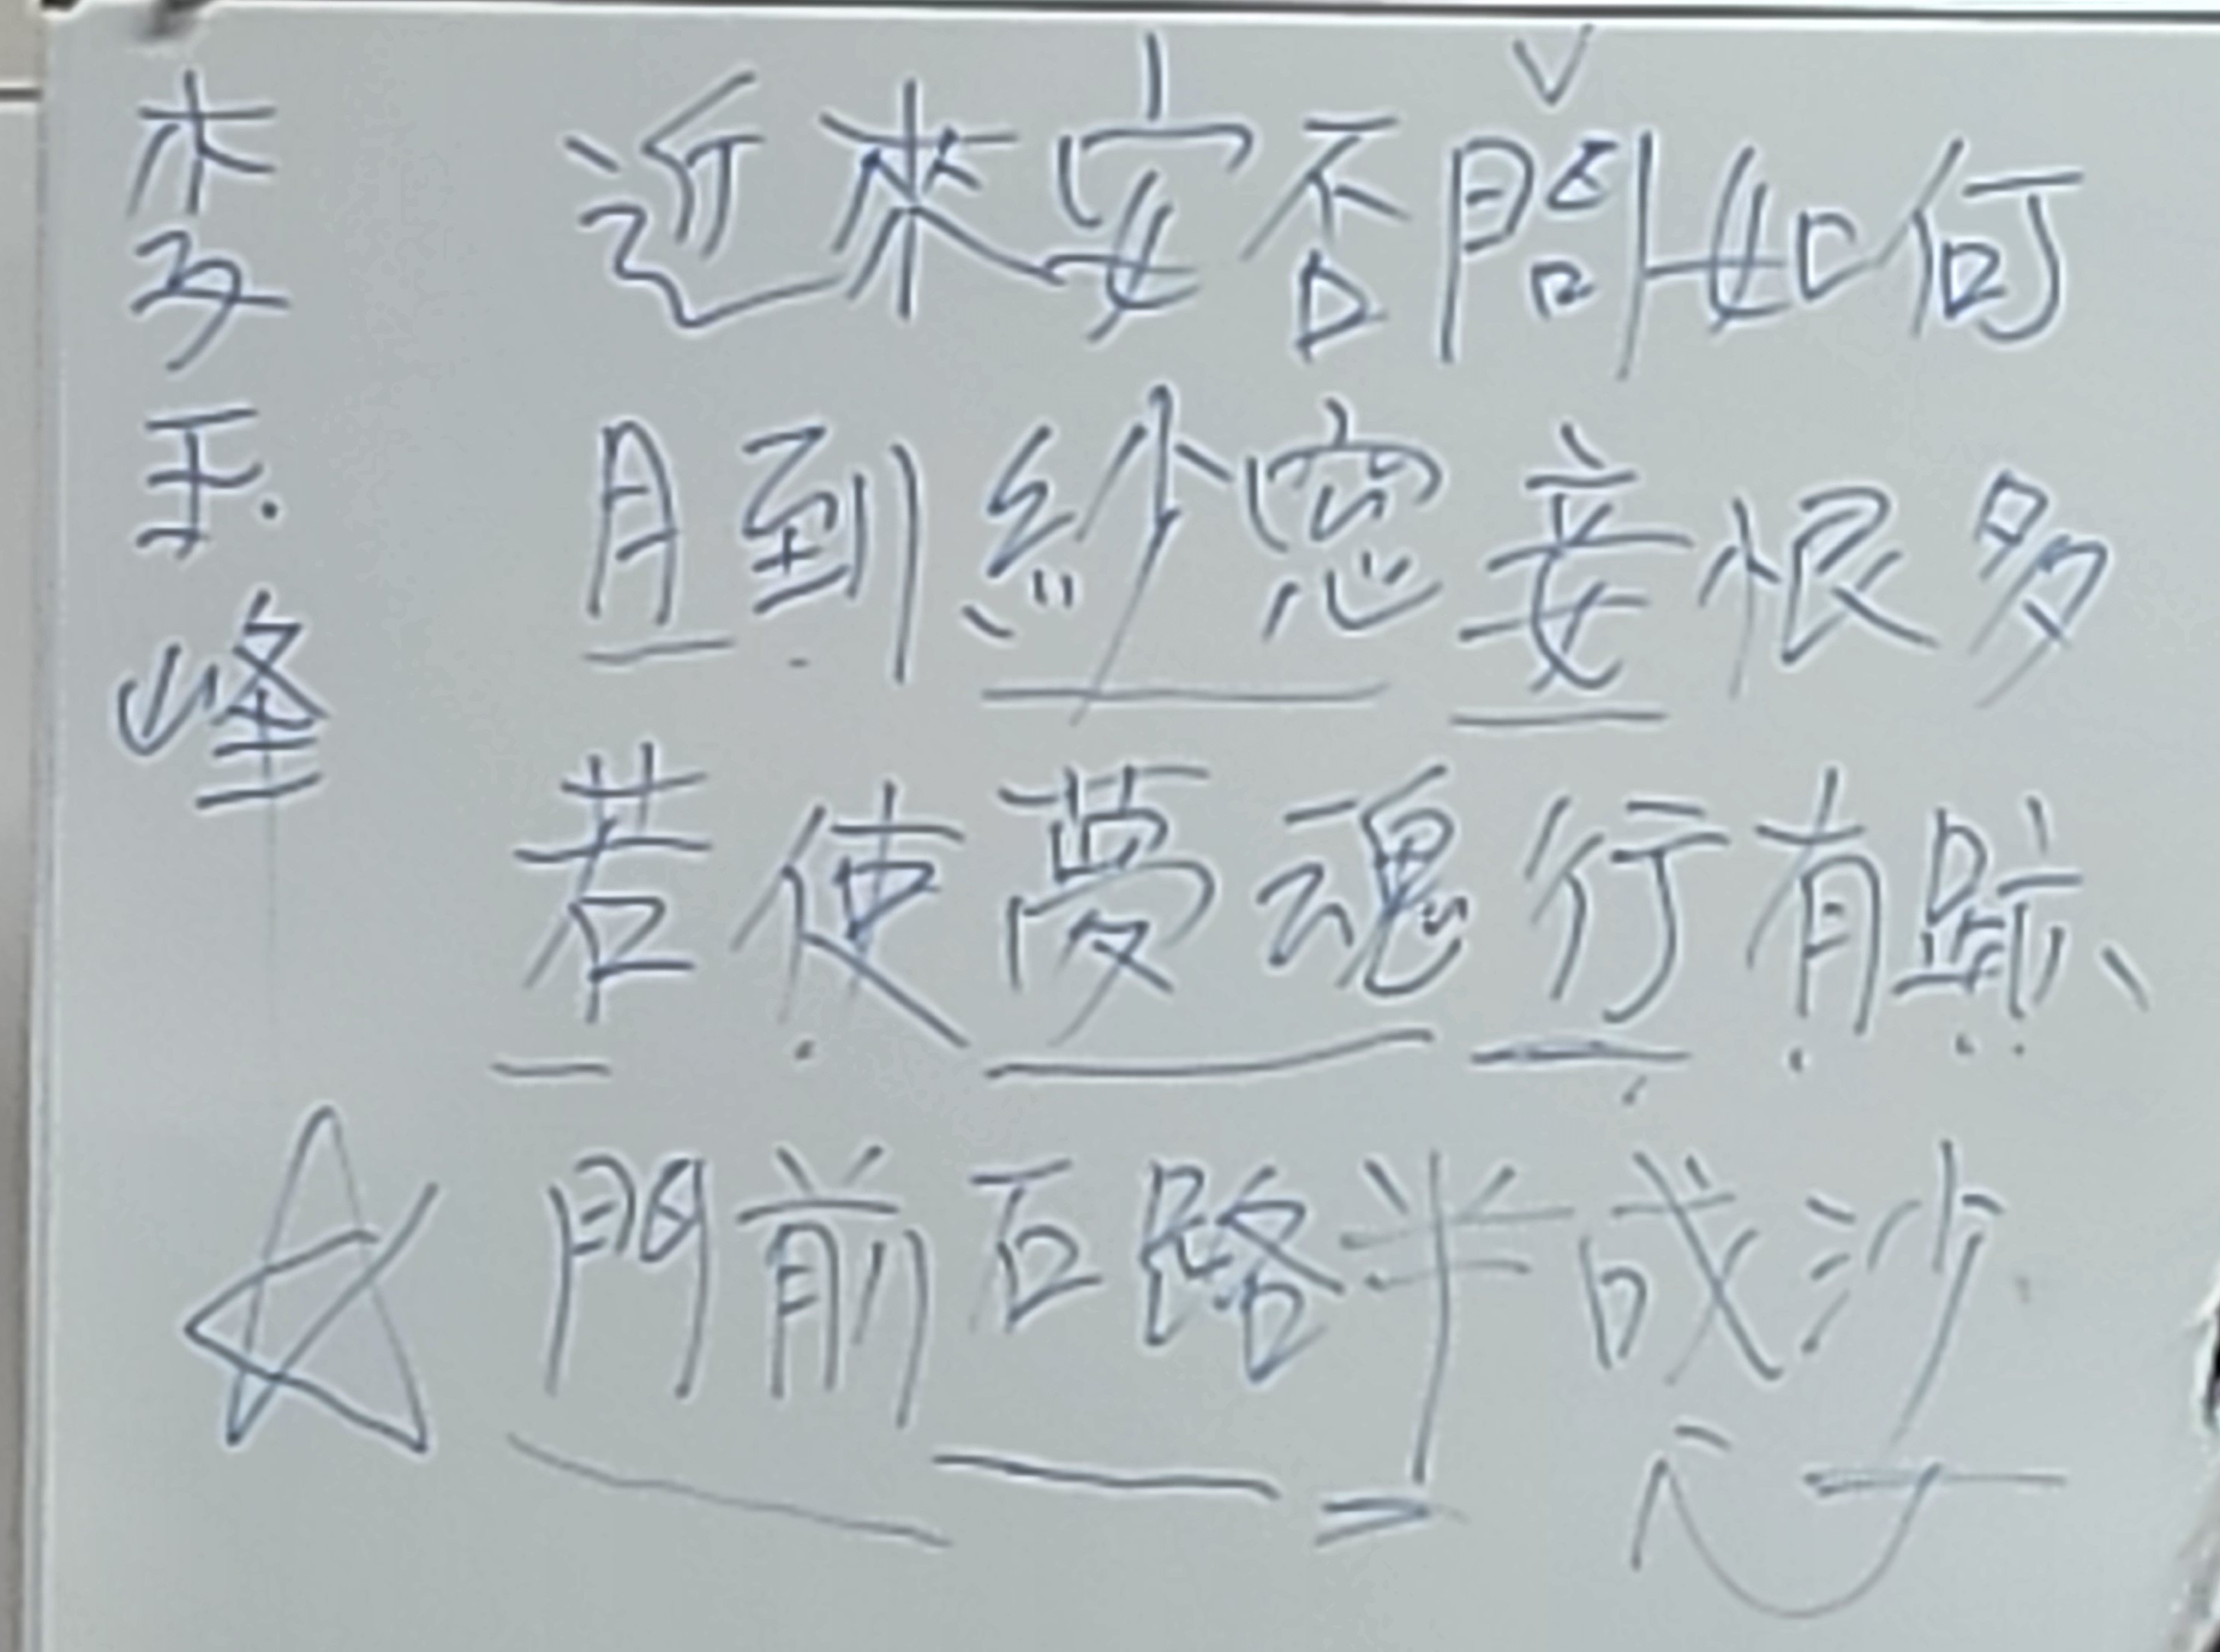 李玉峰
近來安否問如何
月到紗窓妾恨多
若使夢魂行有跡
門前石路半成沙